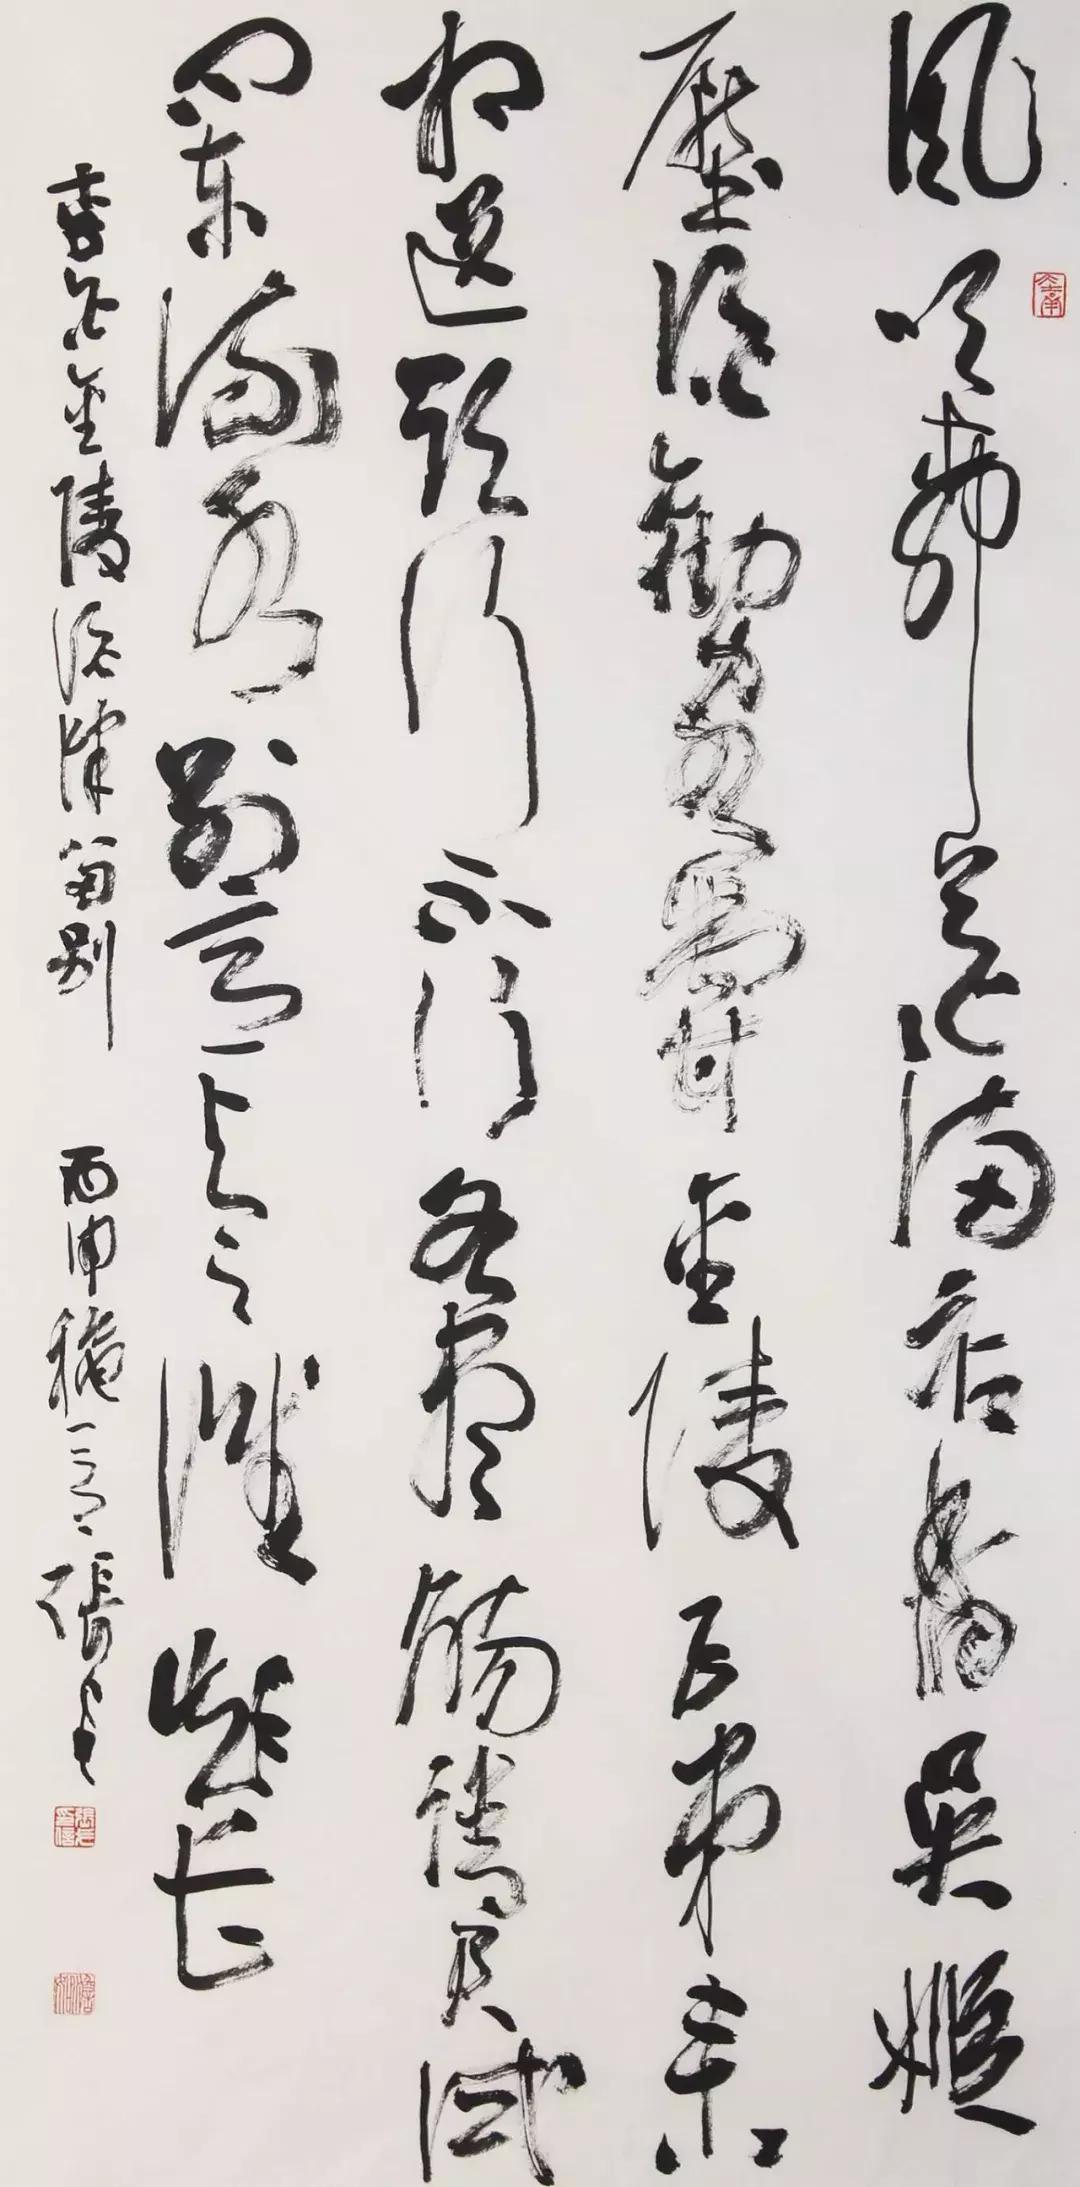 風吹柳花滿店香吳姬
壓酒勸客嘗金陵子弟來
相送欲行不行各盡觴請君試
問東流水別意與之誰短長
李白金陵酒肆留別 丙申穐 張